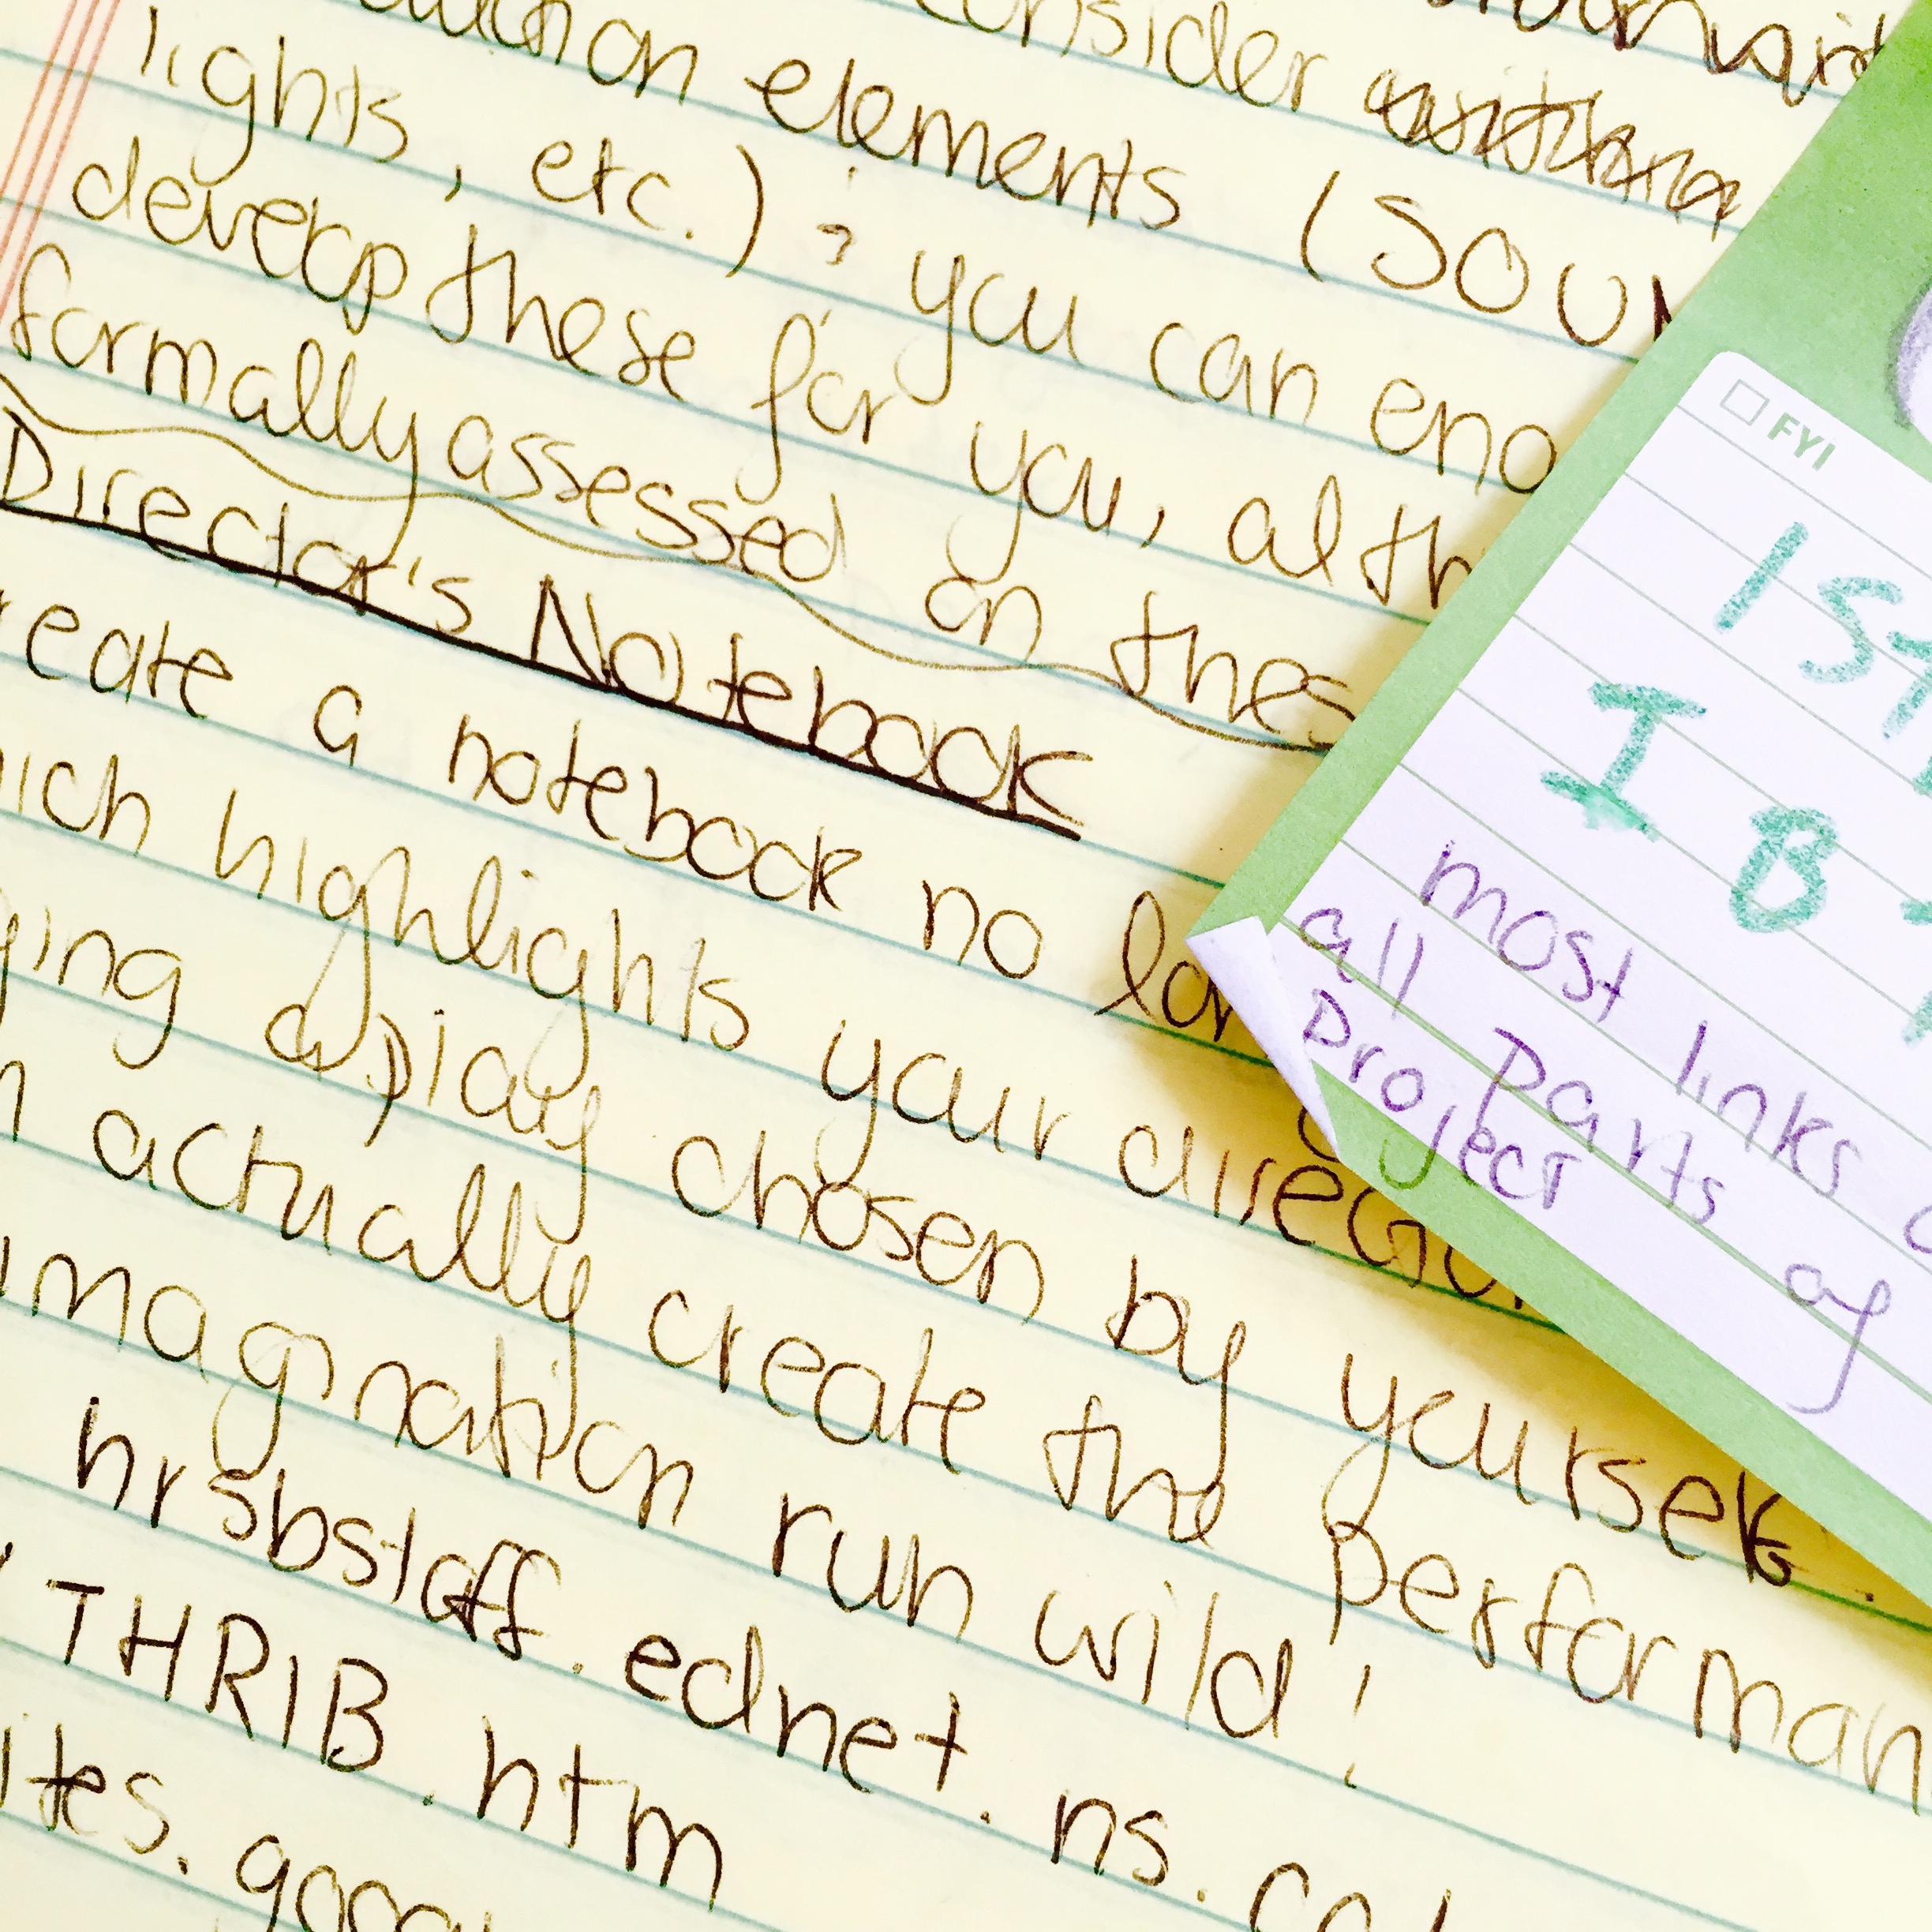 consider
elements (SOUN
lights, etc.) ; you can eno
develop these for you, alth
formally assessed on thes
Director's Notebook
reate a notebook no lon
ich highlights your directo
ing a play chosen by yourself.
n actually create the performan
imagination run wild!
hrsbstaff.ednet.ns.ca/
THRIB.htm
ites.goog
FYI
1st
I B T
most links
all parts of
project